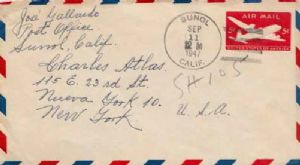 Joe Gallardo
Post Office
Sunol, Calf.
SUNOL
SEP
11
M
1947
CALIF.
AIR MAIL
5¢
5¢
UNITED STATES OF AMERICA
Charles Atlas
115 E. 23 rd St.
Nueva York 10.
New York
U.S.A.
SH105